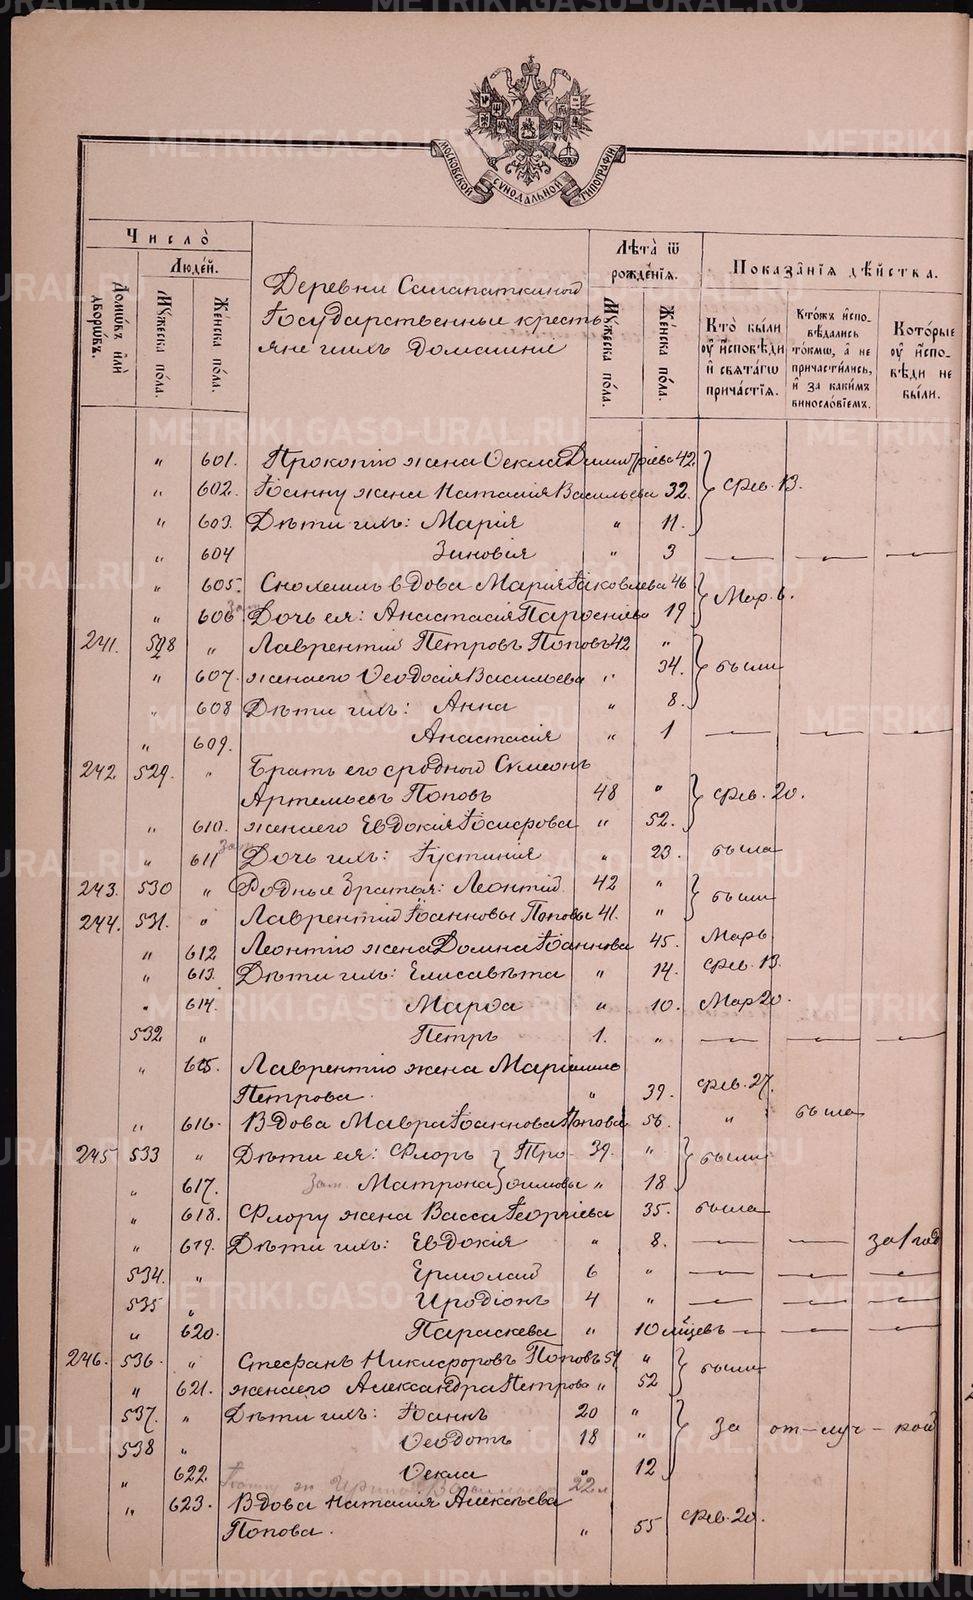 МОСКОВСКОЙ СѴНОДАЛЬНОЙ ТИПОГРАФІИ
Число̀
Люде́й.
Домѡвъ и҆лѝ дворѡвъ.
Мꙋжеска по́ла.
Же́нска по́ла.
Деревни
Государственные кресть-
яне и ихъ домашніе
Лѣта̀ ѿ рожде́нїѧ.
Мꙋжеска по́ла.
Же́нска по́ла.
Показа́нїѧ дѣ́йства.
Кто̀ бы́ли оу҆ и҆́сповѣди и҆ свѧта́гѡ прича́стїѧ.
Кто́жъ и҆спо-вѣ́дались то́кмѡ, а҆ не причасти́лись, и҆ за каки́мъ винослові́емъ.
Кото́рые оу҆ и҆́спо-вѣди не бы́ли.
" 601. Прокопію жена Ѳекла Димитріева 42.
" 602. Іоанну жена Наталія Васильева 32. Фев. 13.
" 603. Дѣти ихъ: Марія " 11.
" 604 Зиновія " 3 — — —
" 605. вдова Марія Іаковлева 46
" 606 Зам. Дочь ея: Анастасія Парѳеніева 19 Мар. 6.
241. 528 " Лаврентій Петровъ Поповъ 42 "
" 607. жена его Ѳеодосія Васильева " 34. были
" 608 Дѣти ихъ: Анна " 8.
" 609. Анастасія " 1 — — —
242 529. " Братъ его сродной Симеонъ
Артемьевъ Поповъ 48 " Фев. 20.
" 610. жена его Евдокія Іосифова " 52.
" 611 Зам. Дочь ихъ: Іустинія " 23. была
243. 530 " Родные братья: Леонтій 42 " были
244. 531. " Лаврентій Іоанновы Поповы 41. "
" 612 Леонтію жена Домна Іоаннова 45. Мар 6
" 613. Дѣти ихъ: Елисавѣта " 14. Фев. 13.
" 614. Марѳа " 10. Мар 20.
532 " Петръ 1. " — — —
" 615. Лаврентію жена Маріамна
Петрова. " 39. Фев. 27.
" 616. Вдова Мавра Іоаннова Попова 56. " была
245 533 " Дѣти ея: Флоръ } Тро- 39. " были
" 617. Зам. Матрона } ѳимовы " 18
" 618. Флору жена Васса Георгіева 35. была
" 619. Дѣти ихъ: Евдокія " 8. — — за 1 год
534. " Ермолай 6 " — — —
535 " Иродіонъ 4 " — — —
" 620. Параскева " 10 мѣсцевъ — — —
246. 536. " Стефанъ Никифоровъ Поповъ 51 " были
" 621. жена его Александра Петрова " 52
537. " Дѣти ихъ: Іоаннъ 20 "
538 " Ѳеодотъ 18 " за от-луч-кой
" 622. Ѳекла " 12
Іоанну ж. Ирина 22 л
" 623. Вдова Наталія Алексѣева
Попова. " 55 Фев. 20.
METRIKI.GASO-URAL.RU